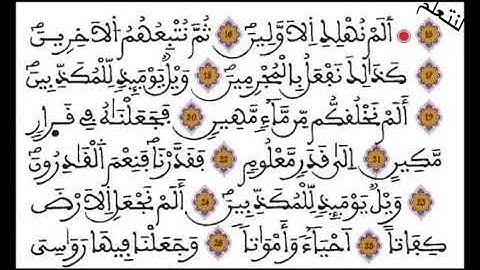 لنتعلم
15 أَلَمْ نُهْلِكِ اِلَاوَّلِينَ 16 ثُمَّ نُتْبِعُهُمُ اُلَاخِرِينَ
17 كَذَٰلِكَ نَفْعَلُ بِالْمُجْرِمِينَ 18 وَيْلٌ يَوْمَئِذٍ لِّلْمُكَذِّبِينَ
19 أَلَمْ نَخْلُقكُّم مِّن مَّآءٍ مَّهِينٍ 20 فَجَعَلْنَاهُ فِي قَرَارٍ
مَّكِينٍ 21 اِلَىٰ قَدَرٍ مَّعْلُومٍ 22 فَقَدَّرْنَا فَنِعْمَ اَلْقَادِرُونَ
23 وَيْلٌ يَوْمَئِذٍ لِّلْمُكَذِّبِينَ 24 أَلَمْ نَجْعَلِ اِلَارْضَ
كِفَاتاً 25 اَحْيَآءً وَأَمْوَاتاً 26 وَجَعَلْنَا فِيهَا رَوَاسِيَ